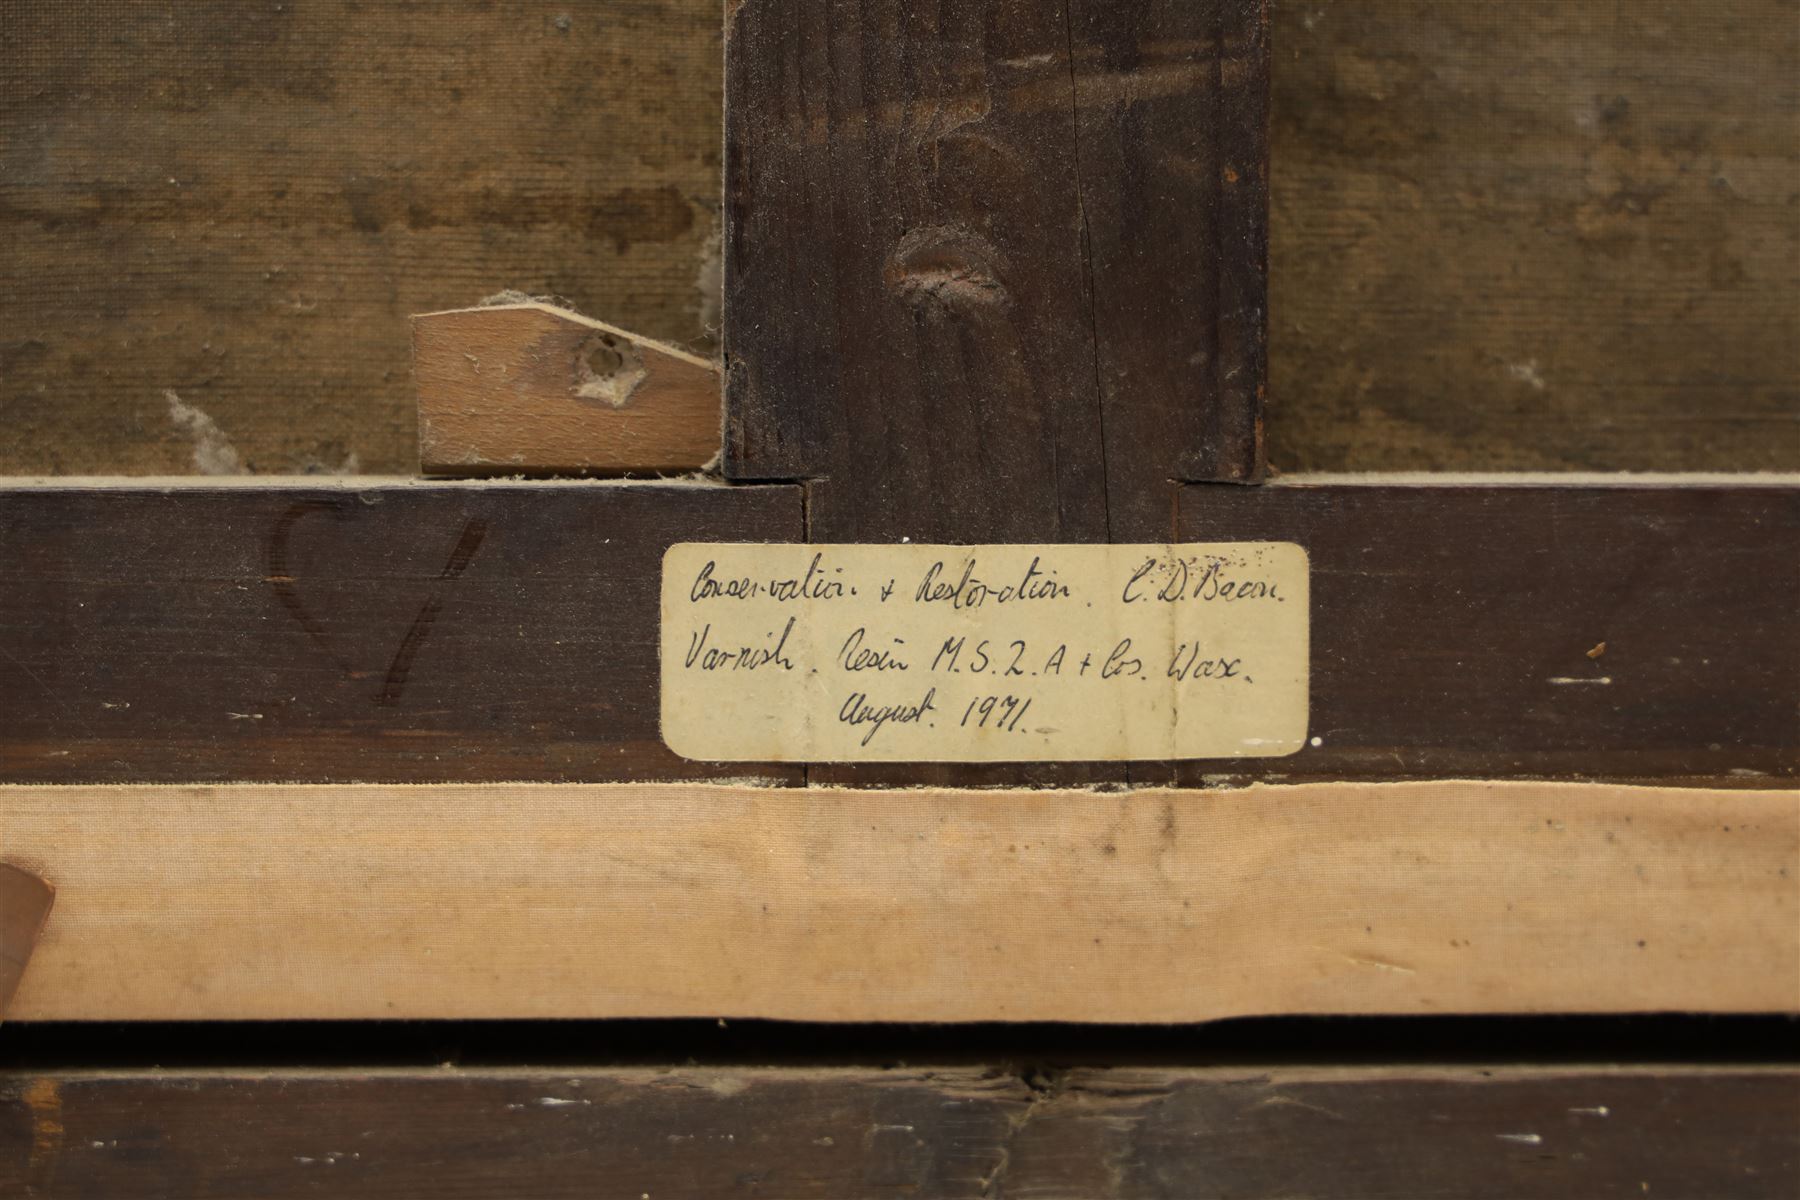 Conservation + Restoration. C.D. Bacon.
Varnish. Resin M.S.2.A + Cos. Wax.
August. 1971.